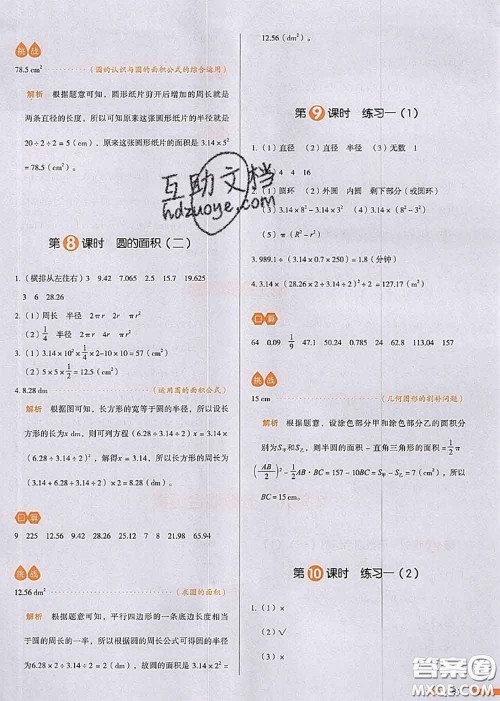 挑战
78.5 cm² （圆的认识与圆的面积公式的综合运用）
解析 根据题意可知，圆形纸片剪开后增加的周长就是
两条直径的长度，所以可知这张圆形纸片的半径就是
20÷2÷2=5（cm），原来这张圆形纸片的面积是3.14×5²
=78.5（cm²）。
第8课时 圆的面积（二）
1.（横排从左往右）3 9.42 7.065 2 12.5 15.7 19.625
3 6 28.26
2.（1）周长 半径 2πr πr πr²
（2）1/4 半径 2πr 4r πr²
3.（1）3.14×10²×1/4×2-10×10=57（cm²）
（2）5×5×1/2=12.5（cm²）
4. 8.28 dm （运用圆的面积公式）
解析 根据图可知，长方形的宽等于圆的半径，所以设长
方形的长为x dm，则可列方程（6.28÷3.14÷2）x=
3.14×（6.28÷3.14÷2）²，解得x=3.14，所以长方形的周长为
（3.14+6.28÷3.14÷2）×2=8.28（dm）。
口算
9 225 12.56 9.42 25.12 7 8 21.98 65.94
挑战
12.56 dm² （求圆的面积）
解析 根据题意可知，平行四边形的一条底边长度相当
于圆的周长的一半，所以根据圆的周长公式可得圆的半径
为6.28×2÷3.14÷2=2（dm），故圆的面积是3.14×2²=
12.56（dm²）。
第9课时 练习一（1）
1.（1）直径 （2）直径 （3）无数 1
（4）4 4 16
2.（1）圆环 （2）外圆 内圆 剩下部分（或圆环）
（3）3.14×8² 3.14×3² （4）3.14×（8²-3²）
（5）π（R²-r²）
3. 989.1÷（3.14×0.7×250）=1.8（分钟）
4. 3.14×（28.26÷3.14÷2）²÷2=127.17（m²）
口算
64 0.09 1/9 47.1 3.85 314 24 62.8 113.04 157
挑战
15 cm （几何图形的割补问题）
解析 根据题意，设涂色部分甲和涂色部分乙的面积分
别为S甲和S乙，则半圆的面积-直角三角形的面积=1/2π
（AB/2）²-1/2AB·BC=157-10BC=S甲-S乙=7（cm²），所以
BC=15 cm。
第10课时 练习一（2）
1.（1）×
（2）√
（3）×
互助文档
hdzuoye.com
答案圈
MXQE.COM